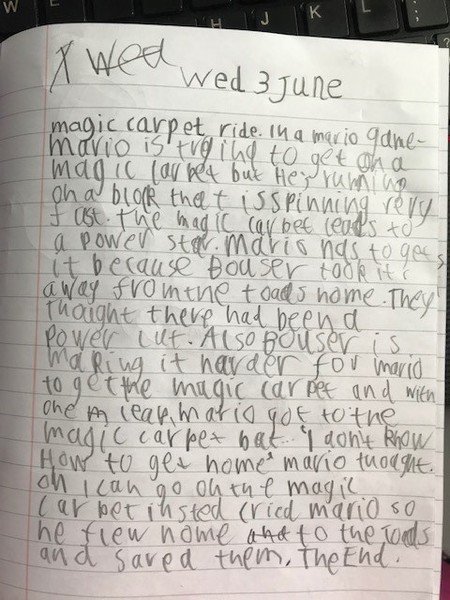 W E H J K L : ;
Wed
Wed 3 June
magic carpet ride. In a mario game-
mario is trying to get on a
magic carpet but He's running
on a block that is spinning very
fast. the magic carpet leads to
a power star. mario has to get
it because Bouser took it
away from the toads home. They
thought there had been a
power cut. Also Bouser is
making it harder for mario
to get the magic carpet and with
one m leap, mario got to the
magic carpet but.. "I don't know
How to get home" mario thought.
oh I can go on the magic
carpet insted cried mario so
he flew home and to the Toads
and saved them. The End.